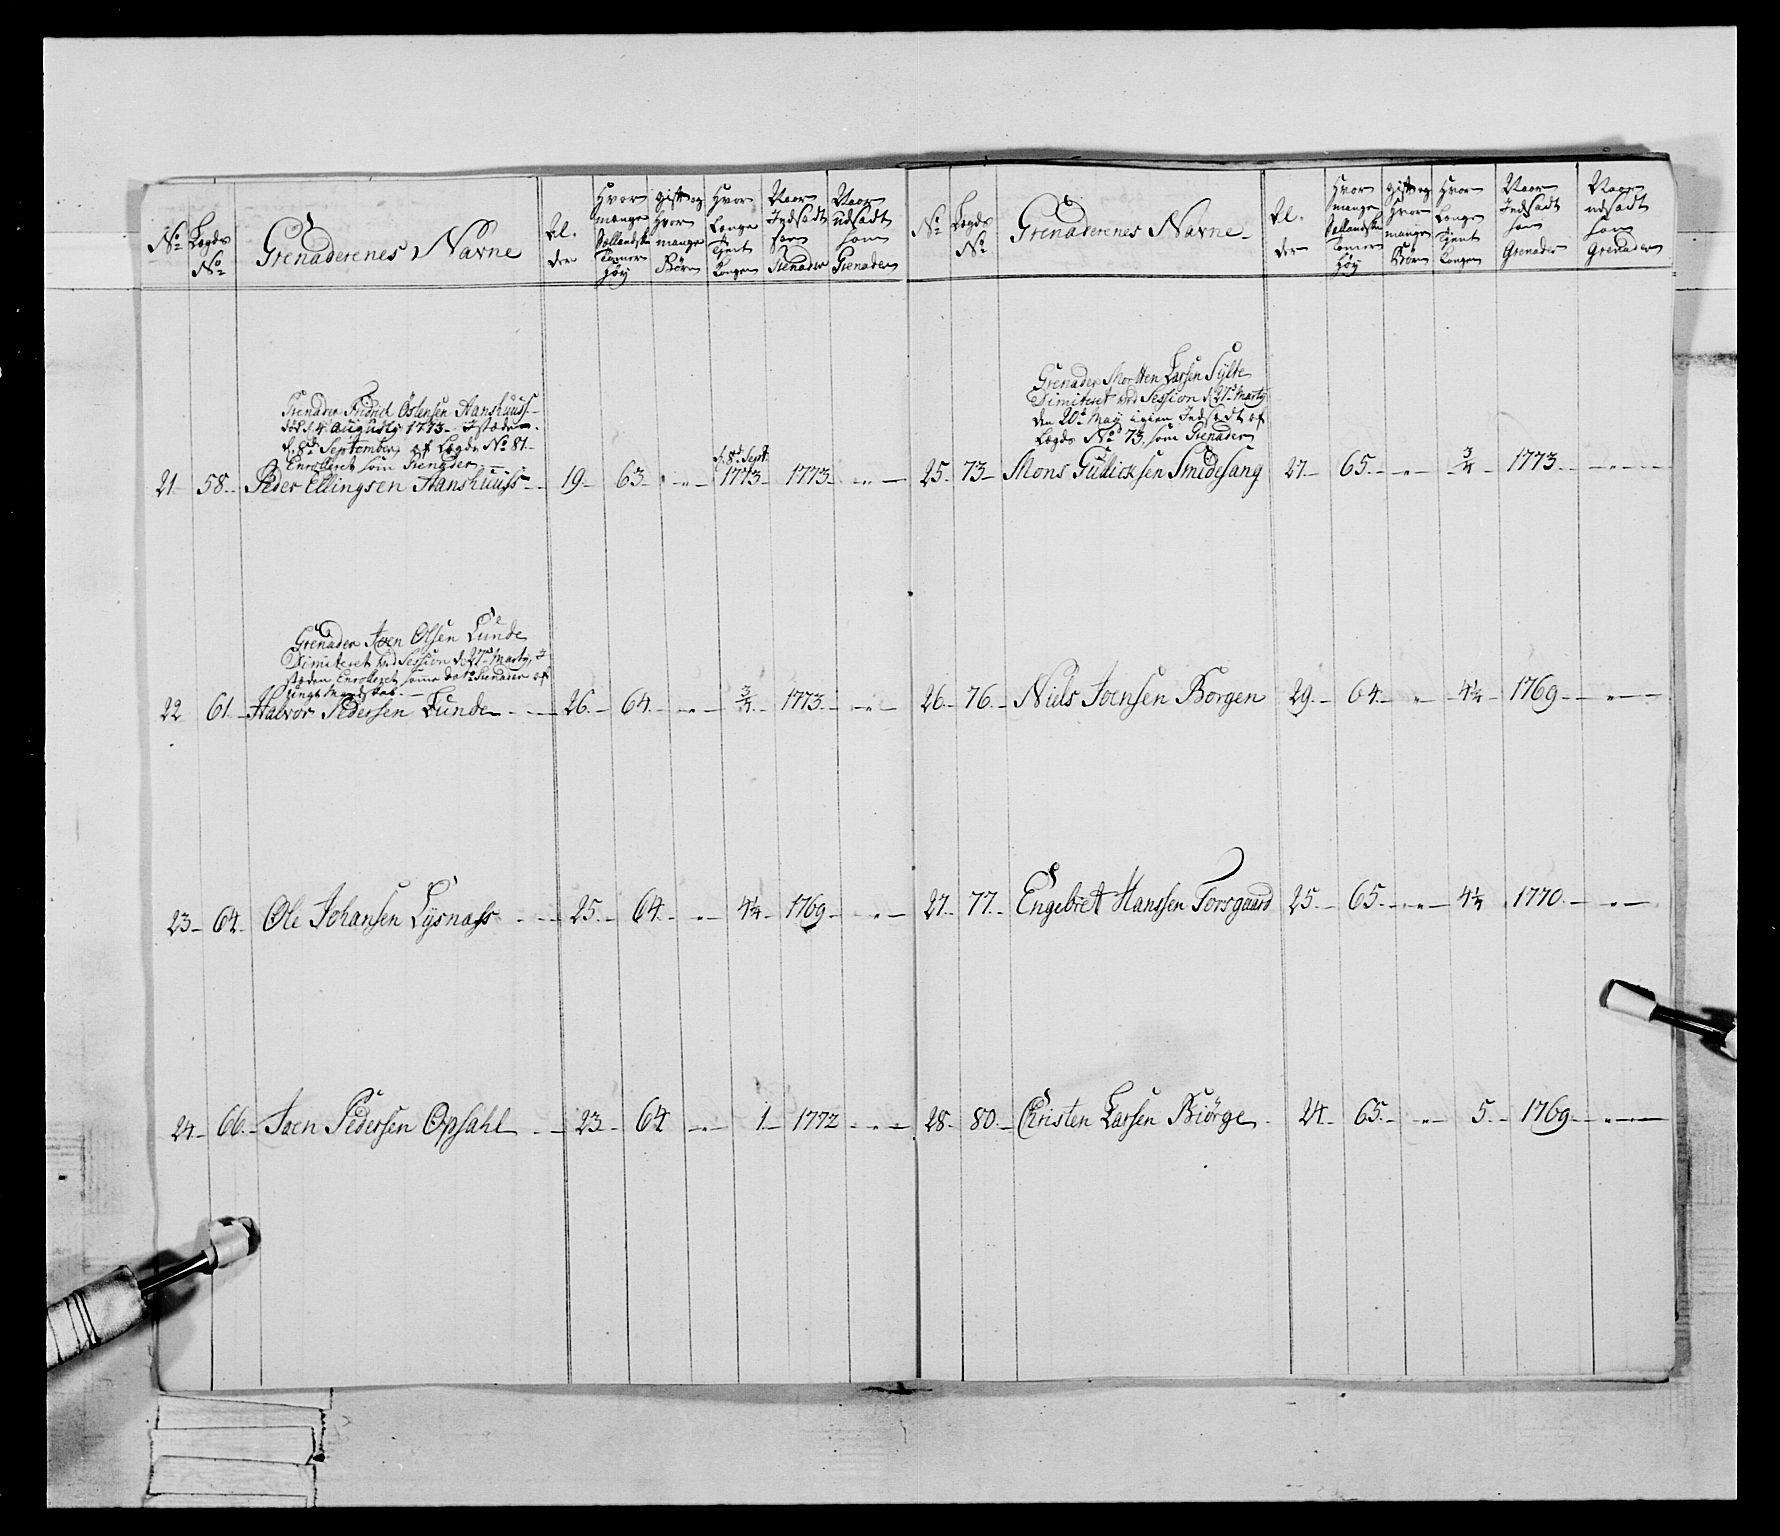 No Lægds No Grenaderenes Navne Alder Hvor mange Siællandske Tommer høy gift og Hvor mange Børn Hvor Længe Tient Kongen Naar Indsadt som Grenader Naar udsadt som Grenader
Grenader Østensen Aanshuuss
4 Augusty 1773
d. 8de September af Lægds No 81
Enrolleret som Grenader
21 58 Peder Ellingsen Aanshuuss 19 63 " d. 8de Sept. 1773 1773 "
Grenader Joen Olsen Lunde
Dimiteret ved Session d. 27de Marty, i
stæden Enrolleret som Grenader af
ungt Mandskab.
22 61 Halvor Pedersen Lunde 26 64 " 3/4 1773 "
23 64 Ole Johansen Lysnæss 25 64 " 4 1/4 1769 "
24 66 Joen Pedersen Opsahl 23 64 " 1 1772 "
No Lægds No Grenaderenes Navne Alder Hvor mange Siællandske Tommer høy gift og Hvor mange Børn Hvor Længe Tient Kongen Naar Indsadt som Grenader Naar udsadt som Grenader
Grenader Mortten Larsen Sylte
Dimiteret ved Session d. 27de Marty
den 20de Maij igien Indsadt af
Lægds No 73, som Grenader
25 73 Mons Gullicksen Smedesang 27 65 " 3/4 1773 "
26 76 Niels Joensen Borgen 29 64 " 4 1/4 1769 "
27 77 Engebret Hanssen Forsgaard 25 65 " 4 1/4 1770 "
28 80 Christen Larsen Biørge 24 65 " 5 1769 "